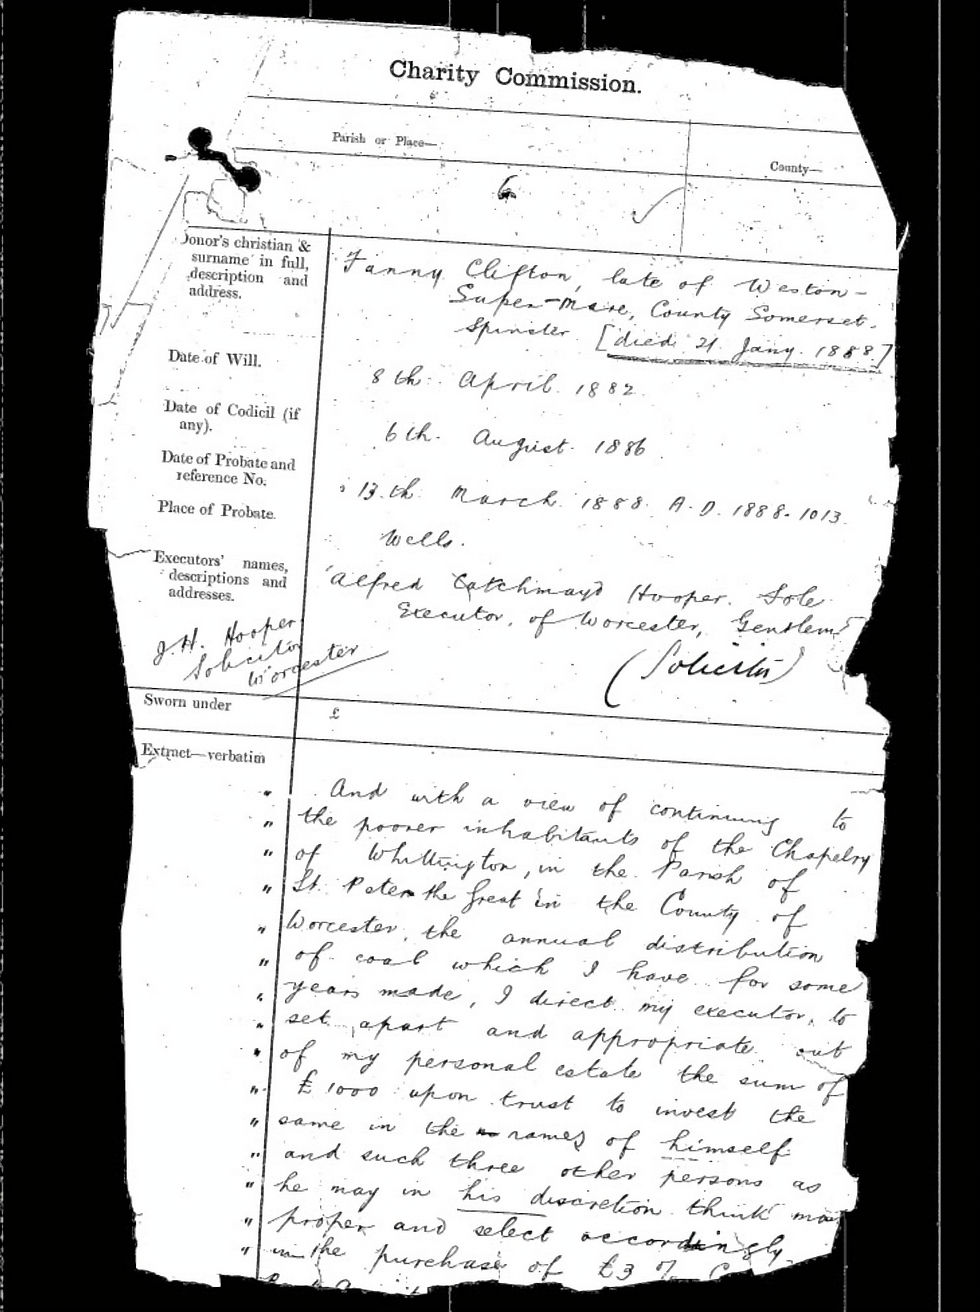 Charity Commission.
Parish or Place—
County—
6
Donor's christian &
surname in full,
description and
address.
Fanny Clifton, late of Weston-
Super-Mare, County Somerset.
Spinster [died 21 Jany. 1888.]
Date of Will.
8th April. 1882.
Date of Codicil (if
any).
6th. August. 1886
Date of Probate and
reference No.
13.th March. 1888. A.D. 1888-1013
Place of Probate.
Wells.
Executors' names,
descriptions and
addresses.
Alfred Catchmayd Hooper. Sole
Executor, of Worcester, Gentlemn
(Solicitor)
J.H. Hooper
Solicitor
Worcester
Sworn under
£
Extract—verbatim
" And with a view of continuing to
" the poorer inhabitants of the Chapelry
" of Whittington, in the Parish of
" St. Peter the Great in the County of
" Worcester, the annual distribution
" of coal which I have for some
" years made, I direct my executor, to
" set apart and appropriate out
" of my personal estate the sum of
" £1000 upon trust to invest the
" same in the names of himself
" and such three other persons as
" he may in his discretion think mos
" proper and select accordingly
" in the purchase of £3 %